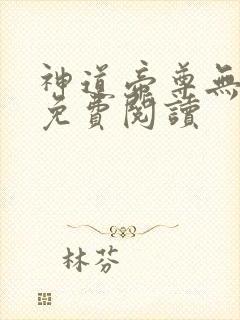 神道帝尊無
免費閱讀
林芬